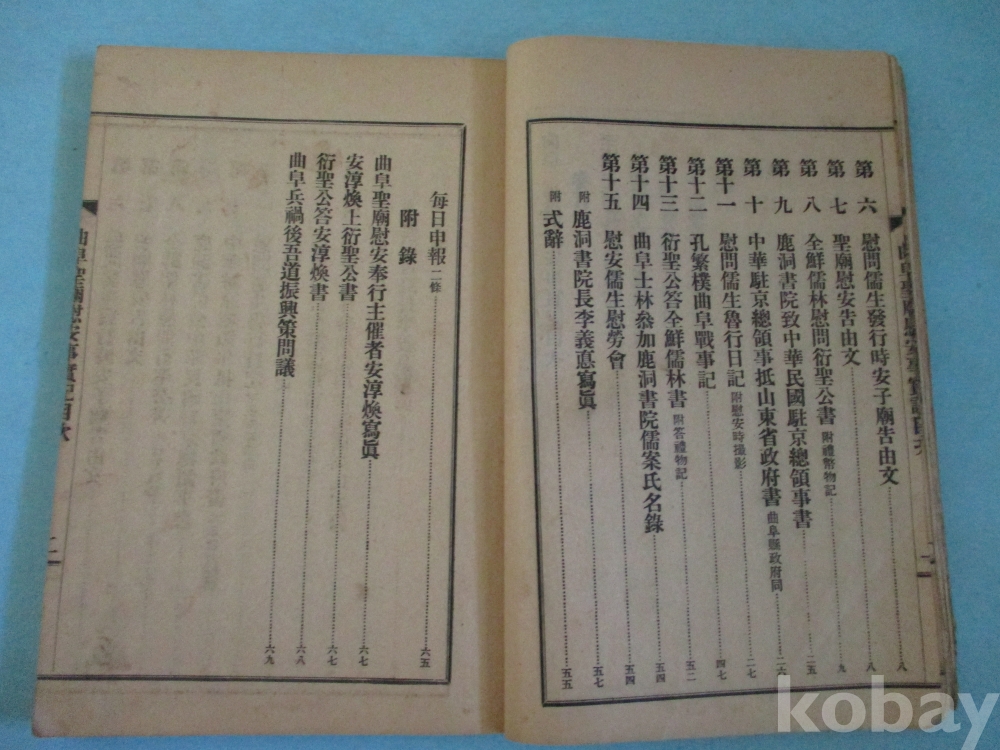 第六 慰問儒生發行時安子廟告由文 八
第七 聖廟慰安告由文 九
第八 全鮮儒林慰問衍聖公書 附禮幣物記 二五
第九 鹿洞書院致中華民國駐京總領事書 二六
第十 中華駐京總領事抵山東省政府書 曲阜縣政府同 二七
第十一 慰問儒生魯行日記 附慰安時撮影 四七
第十二 孔繁樸曲阜戰事記 五二
第十三 衍聖公答全鮮儒林書 附答禮物記 五四
第十四 曲阜士林叅加鹿洞書院儒案氏名錄 五四
第十五 慰安儒生慰勞會
附 鹿洞書院長李義悳寫眞 五七
附 式辭 五五
曲阜聖廟慰安事實記目次
二
每日申報 二條 六五
附錄
曲阜聖廟慰安奉行主催者安淳煥寫眞
安淳煥上衍聖公書 六七
衍聖公答安淳煥書 六七
曲阜兵禍後吾道振興策問議 六八
六九
曲阜聖廟慰安事實記目次
二
kobay